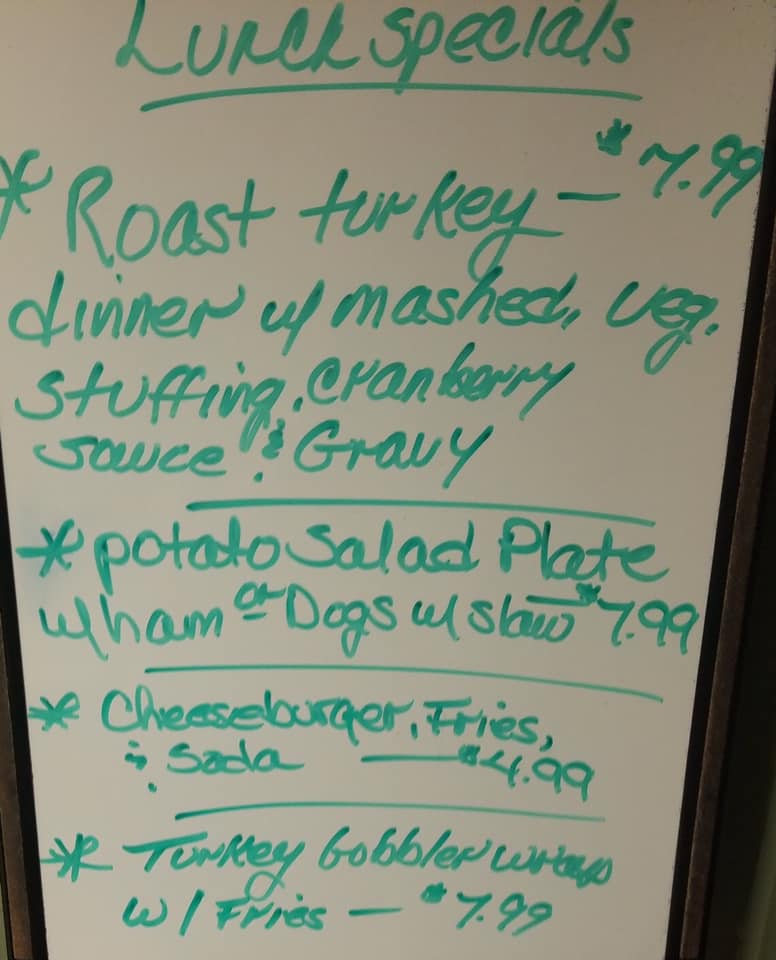 Lunch Specials
* Roast turkey — $7.99
dinner w/ mashed, veg.
stuffing, cranberry
sauce & Gravy
* potato Salad Plate
w/ham or Dogs w/ slaw — $7.99
* Cheeseburger, Fries,
& Soda — $4.99
* Turkey Gobbler wrap
w/ Fries — $7.99